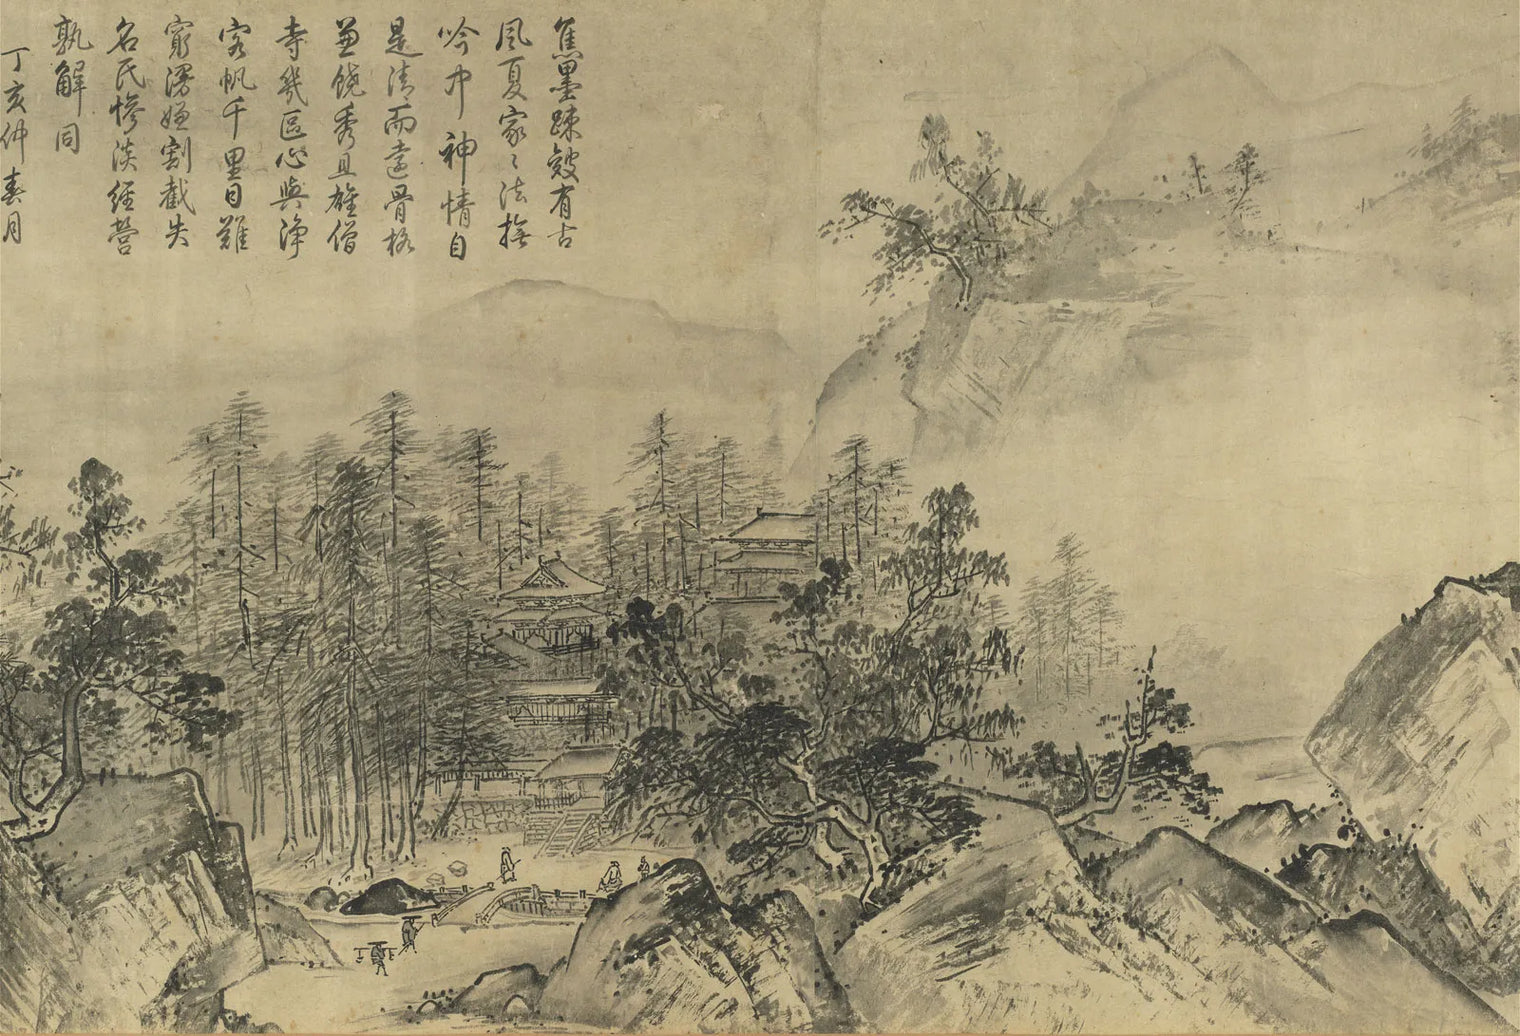 焦墨疎皴有古
風夏家〻法撫
吟中神情自
是清而遠骨格
兼饒秀且雄僧
寺幾區心與淨
客帆千里目難
窮漫嫌割截失
名氏慘淡經營
孰解同
丁亥仲春月